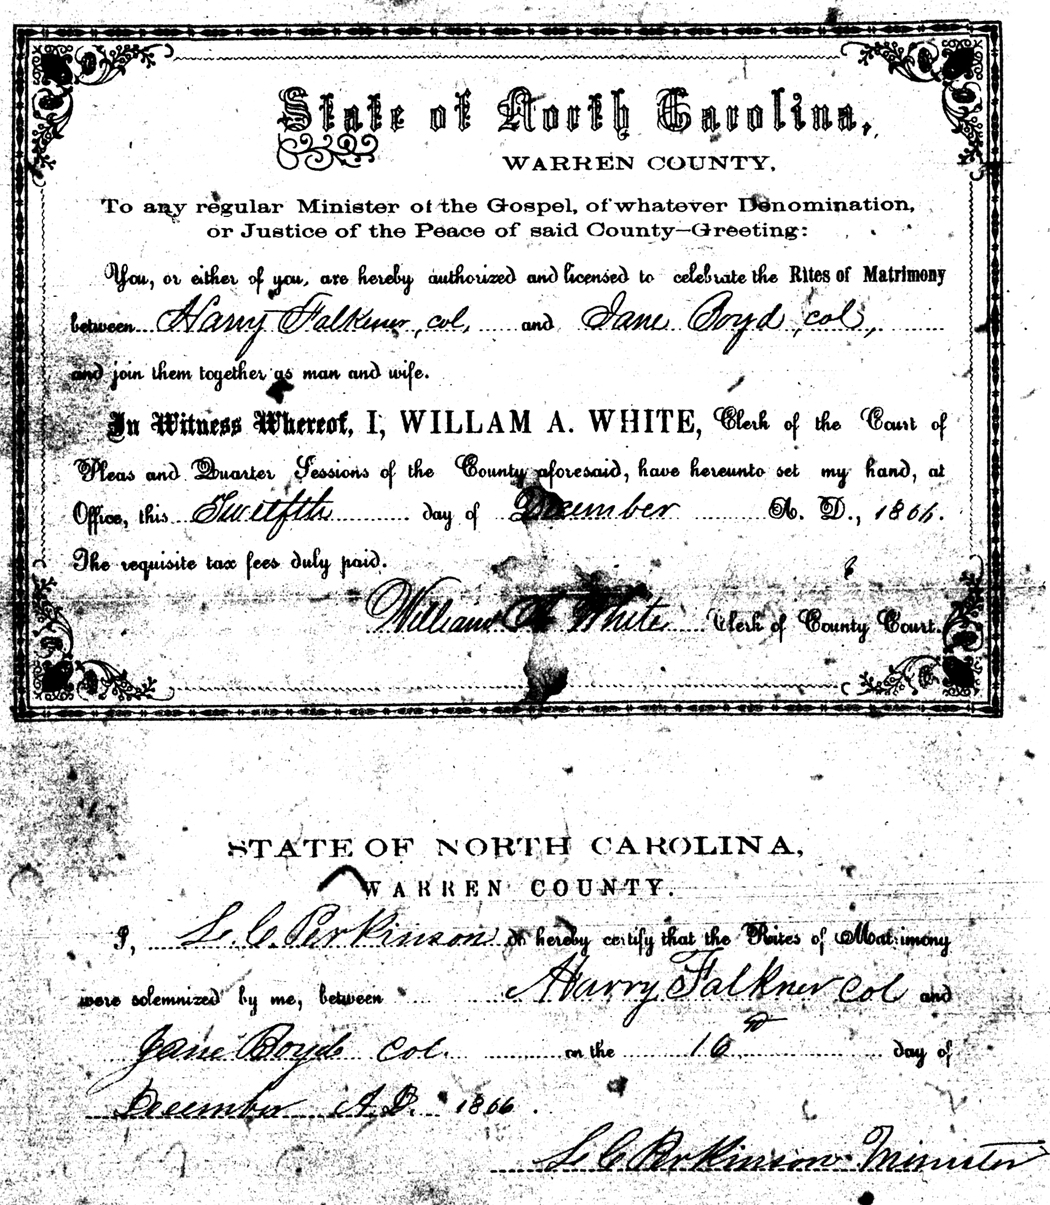 State of North Carolina,
WARREN COUNTY,
To any regular Minister of the Gospel, of whatever Denomination,
or Justice of the Peace of said County—Greeting:
You, or either of you, are hereby authorized and licensed to celebrate the Rites of Matrimony
between Harry Falkner, col, and Jane Boyd, col,
and join them together as man and wife.
In Witness Whereof, I, WILLAM A. WHITE, Clerk of the Court of
Pleas and Quarter Sessions of the County aforesaid, have hereunto set my hand, at
Office, this Twelfth day of December A. D., 1866.
The requisite tax fees duly paid.
William A White Clerk of County Court.
STATE OF NORTH CAROLINA,
WARREN COUNTY.
I, L. C. Perkinson do hereby certify that the Rites of Matrimony
were solemnized by me, between Harry Falkner Col and
Jane Boyd Col. on the 16 day of
December A.D. 1866.
L C Perkinson Minister